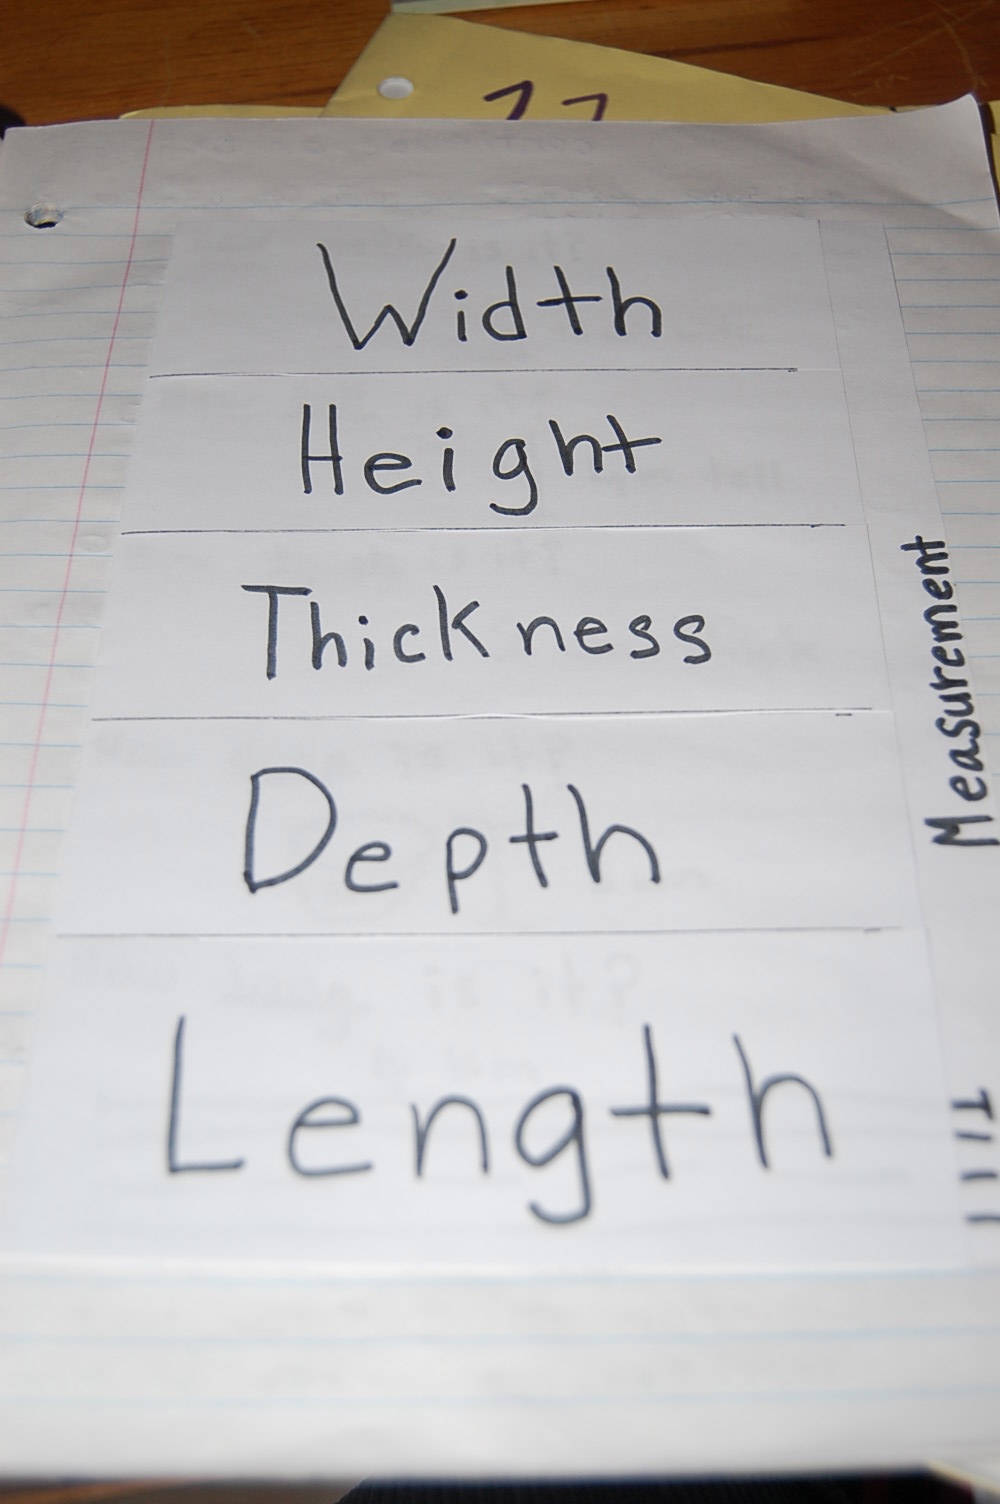 Width
Height
Thickness
Depth
Length
Measurement